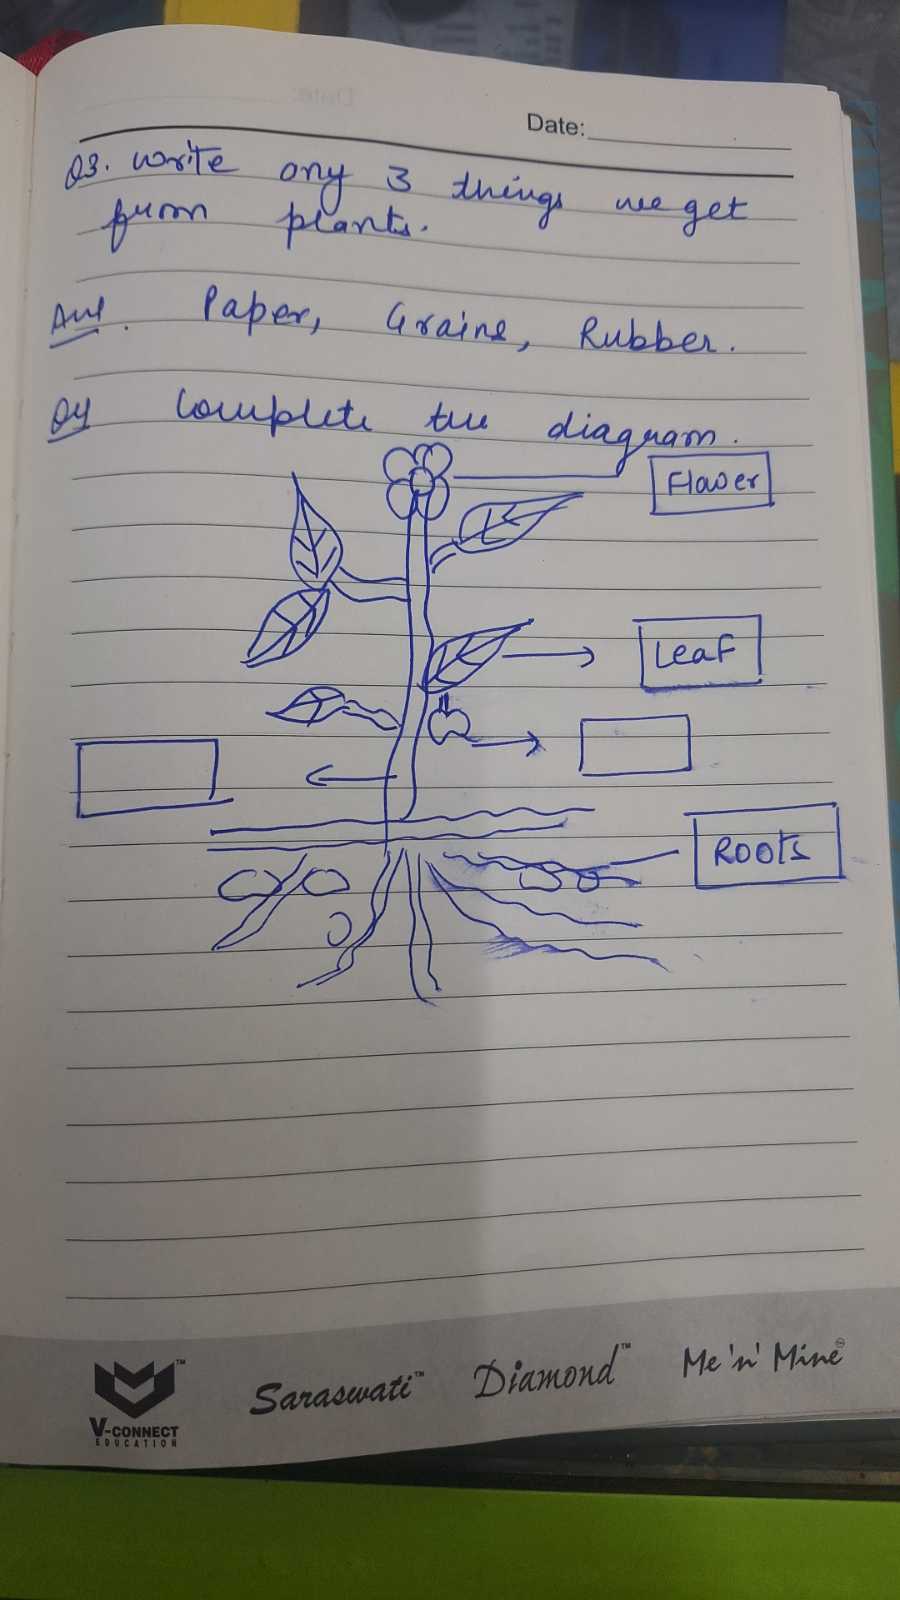 Date:
Q3. Write any 3 things we get
from plants.
Ans. Paper, Grains, Rubber.
Q4 Complete the diagram.
Flower
Leaf
Roots
V-CONNECT
EDUCATION
Saraswati™ Diamond™ Me 'n' Mine